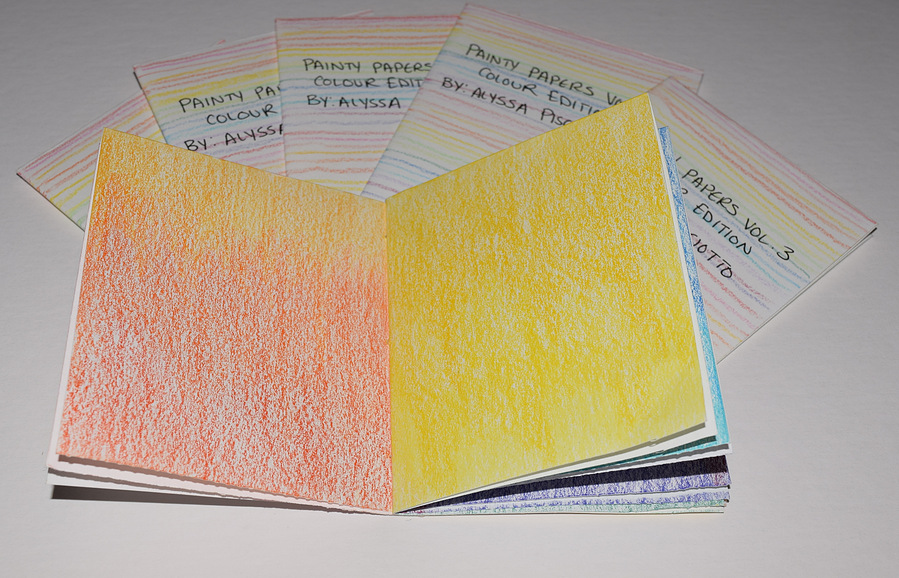 PAINTY PAPERS
COLOUR
BY: ALYSSA
PAINTY PAPERS
COLOUR EDIT
BY: ALYSSA
PAINTY PAPERS VO
COLOUR EDITION
BY: ALYSSA PISC
PAPERS VOL. 3
EDITION
IOTTO